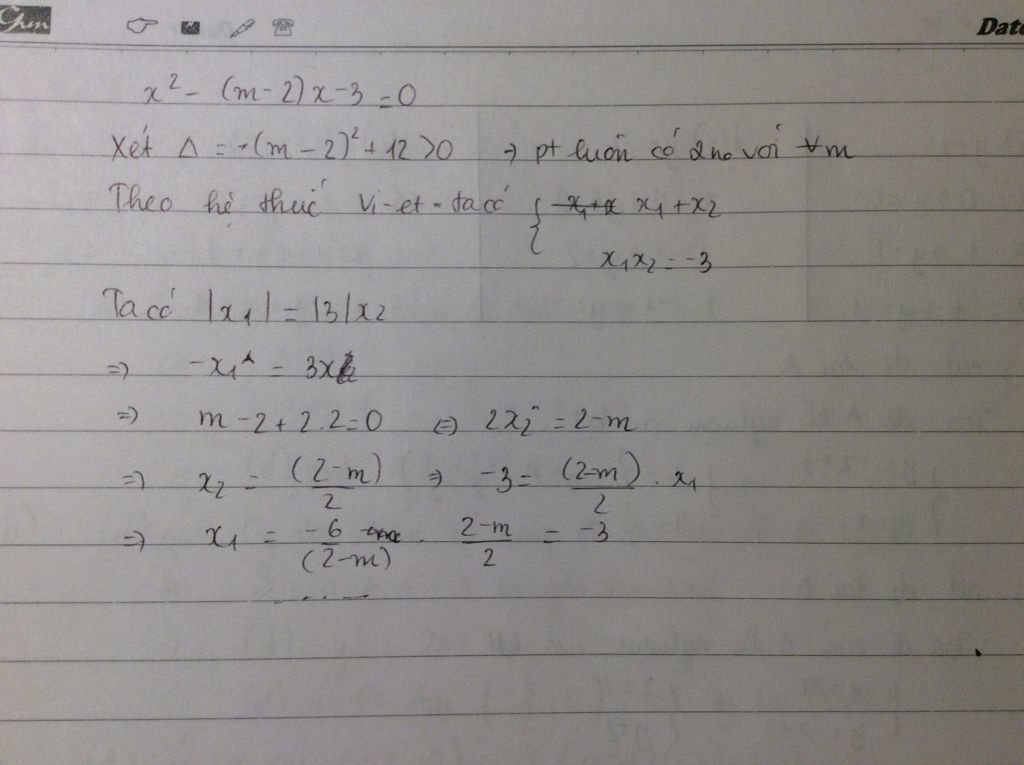 Date
x² - (m-2)x-3=0
Xét Δ = -(m-2)²+12>0 → pt luôn có 2no với ∀m
Theo hệ thức Vi-et ta có { x₁+x₂
x₁x₂=-3
Ta có |x₁| = |3|x₂
=> -x₁ = 3x
=> m-2+2.2=0 <=> 2x₂ = 2-m
=> x₂ = (2-m)/2 => -3 = (2-m)/2 . x₁
=> x₁ = -6/(2-m) . 2-m/2 = -3
....